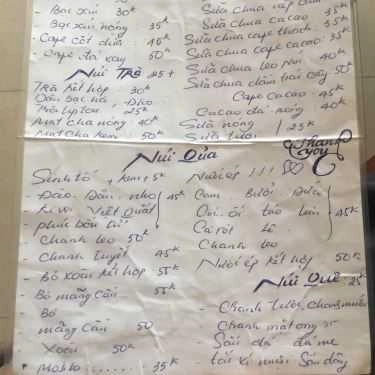 - Bạc xỉu 30k
- Bạc xỉu nóng 35k
- Cafe cốt dừa 45k
- Cafe đá xay 50k
Núi Trà 45+
Trà kết hợp 30k
Dâu, bạc hà, Đào
Trà lipton 25k
Mat cha nóng 40k
Mat cha kem 50k
Sữa chua cafe 35k
Sữa chua cacao 35k
Sữa chua cafe cacao 35k
Sữa chua leo núi 40k
Sữa chua dầm trái cây 50k
Cafe cacao 45k
Cacao đá nóng 40k
Sữa nóng
Sữa tươi 25k
Thank you
Núi Qủa
Sinh tố + kem + 5k
- Đào Dâu nho
- kiwi Việt Quất 45k
- phúc bồn tử
- Chanh leo 50k
- Chanh tuyết 45k
- Bơ xoài kết hợp 55k
- Bơ mãng cầu 55k
Bơ
mãng cầu 50
Xoài 50k
Mojito 35k
Nước ép !!!
Cam Bưởi Dứa
Ổi táo 45k
Cà rốt Lê
Chanh leo
Nước ép kết hợp 50k
Núi Quê 25k
- Chanh tươi, chanh muối
Chanh mật ong
Sấu đá me
tắc xí muội Sấu đông